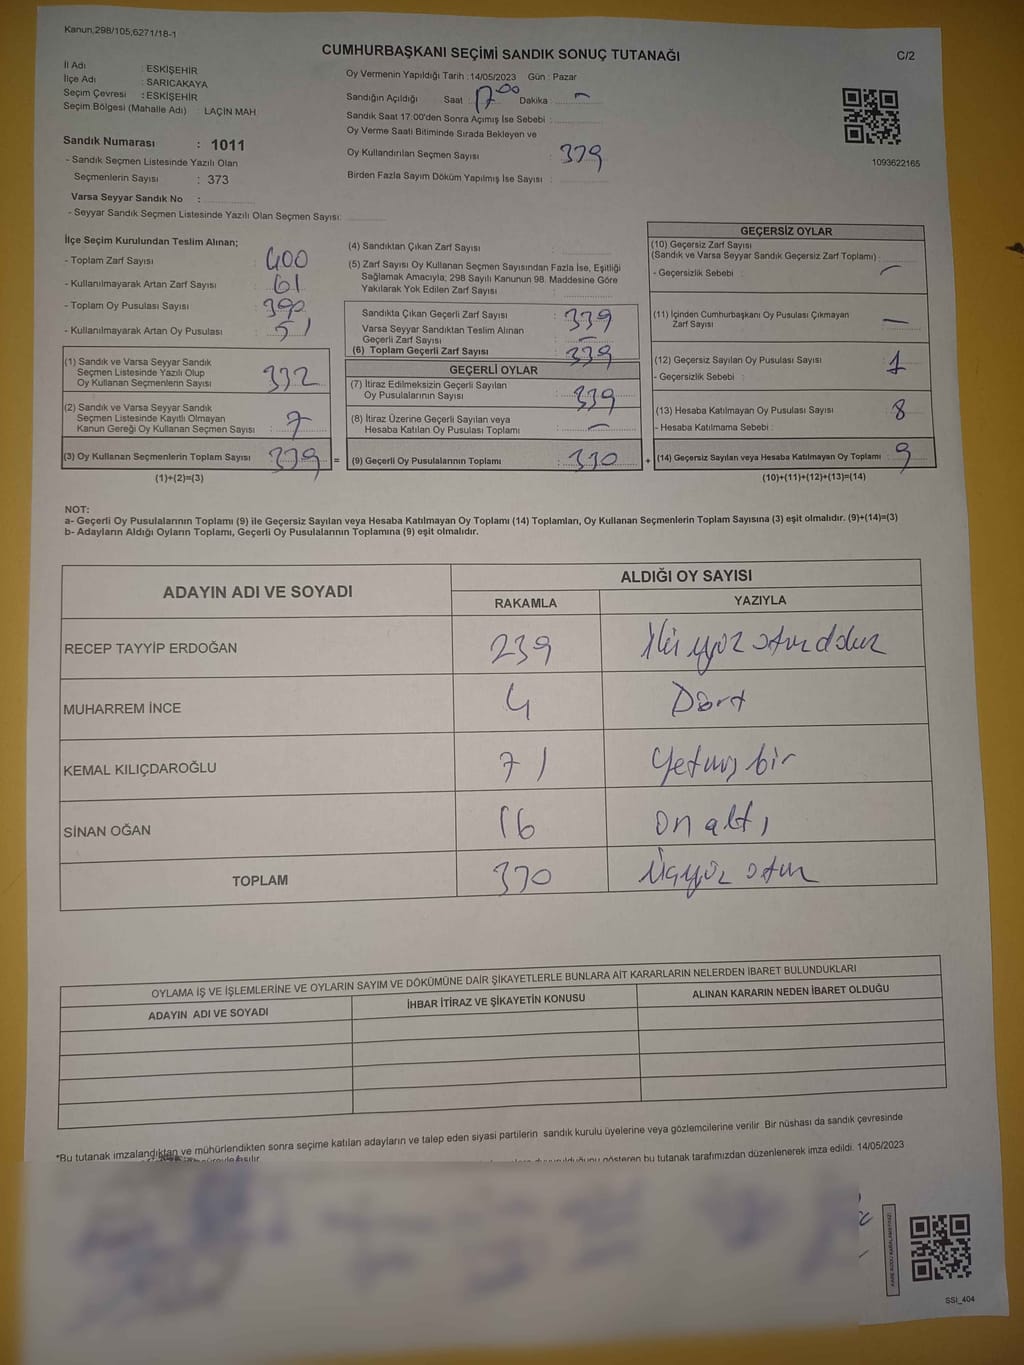 Kanun,298/105,6271/18-1
CUMHURBAŞKANI SEÇİMİ SANDIK SONUÇ TUTANAĞI
C/2
İl Adı : ESKİŞEHİR
İlçe Adı : SARICAKAYA
Seçim Çevresi : ESKİŞEHİR
Seçim Bölgesi (Mahalle Adı) : LAÇİN MAH
Oy Vermenin Yapıldığı Tarih :14/05/2023 Gün : Pazar
Sandığın Açıldığı Saat : 17.00 Dakika : -
Sandık Saat 17.00'den Sonra Açımış İse Sebebi :
Oy Verme Saati Bitiminde Sırada Bekleyen ve
Oy Kullandırılan Seçmen Sayısı : 339
Birden Fazla Sayım Döküm Yapılmış İse Sayısı :
1093622165
Sandık Numarası : 1011
- Sandık Seçmen Listesinde Yazılı Olan
Seçmenlerin Sayısı : 373
Varsa Seyyar Sandık No :
- Seyyar Sandık Seçmen Listesinde Yazılı Olan Seçmen Sayısı:
İlçe Seçim Kurulundan Teslim Alınan;
- Toplam Zarf Sayısı : 400
- Kullanılmayarak Artan Zarf Sayısı : 61
- Toplam Oy Pusulası Sayısı : 390
- Kullanılmayarak Artan Oy Pusulası : 51
(1) Sandık ve Varsa Seyyar Sandık
Seçmen Listesinde Yazılı Olup
Oy Kullanan Seçmenlerin Sayısı : 332
(2) Sandık ve Varsa Seyyar Sandık
Seçmen Listesinde Kayıtlı Olmayan
Kanun Gereği Oy Kullanan Seçmen Sayısı : 7
(3) Oy Kullanan Seçmenlerin Toplam Sayısı : 339 =
(1)+(2)=(3)
(4) Sandıktan Çıkan Zarf Sayısı :
(5) Zarf Sayısı Oy Kullanan Seçmen Sayısından Fazla İse, Eşitliği
Sağlamak Amacıyla; 298 Sayılı Kanunun 98. Maddesine Göre
Yakılarak Yok Edilen Zarf Sayısı :
Sandıkta Çıkan Geçerli Zarf Sayısı : 339
Varsa Seyyar Sandıktan Teslim Alınan
Geçerli Zarf Sayısı : -
(6) Toplam Geçerli Zarf Sayısı : 339
GEÇERLİ OYLAR
(7) İtiraz Edilmeksizin Geçerli Sayılan
Oy Pusulalarının Sayısı : 339
(8) İtiraz Üzerine Geçerli Sayılan veya
Hesaba Katılan Oy Pusulası Toplamı : -
(9) Geçerli Oy Pusulalarının Toplamı : 330 +
GEÇERSİZ OYLAR
(10) Geçersiz Zarf Sayısı
(Sandık ve Varsa Seyyar Sandık Geçersiz Zarf Toplamı) :
- Geçersizlik Sebebi : -
(11) İçinden Cumhurbaşkanı Oy Pusulası Çıkmayan
Zarf Sayısı : -
(12) Geçersiz Sayılan Oy Pusulası Sayısı : 1
- Geçersizlik Sebebi :
(13) Hesaba Katılmayan Oy Pusulası Sayısı : 8
- Hesaba Katılmama Sebebi :
(14) Geçersiz Sayılan veya Hesaba Katılmayan Oy Toplamı : 9
(10)+(11)+(12)+(13)=(14)
NOT:
a- Geçerli Oy Pusulalarının Toplamı (9) ile Geçersiz Sayılan veya Hesaba Katılmayan Oy Toplamı (14) Toplamları, Oy Kullanan Seçmenlerin Toplam Sayısına (3) eşit olmalıdır. (9)+(14)=(3)
b- Adayların Aldığı Oyların Toplamı, Geçerli Oy Pusulalarının Toplamına (9) eşit olmalıdır.
ADAYIN ADI VE SOYADI
ALDIĞI OY SAYISI
RAKAMLA YAZIYLA
RECEP TAYYİP ERDOĞAN 239 İki yüz otuz dokuz
MUHARREM İNCE 4 Dört
KEMAL KILIÇDAROĞLU 71 Yetmiş bir
SİNAN OĞAN 16 on altı
TOPLAM 330 Üçyüz otuz
OYLAMA İŞ VE İŞLEMLERİNE VE OYLARIN SAYIM VE DÖKÜMÜNE DAİR ŞİKAYETLERLE BUNLARA AİT KARARLARIN NELERDEN İBARET BULUNDUKLARI
ADAYIN ADI VE SOYADI İHBAR İTİRAZ VE ŞİKAYETİN KONUSU ALINAN KARARIN NEDEN İBARET OLDUĞU
*Bu tutanak imzalandıktan ve mühürlendikten sonra seçime katılan adayların ve talep eden siyasi partilerin sandık kurulu üyelerine veya gözlemcilerine verilir Bir nüshası da sandık çevresinde
gösteren bu tutanak tarafımızdan düzenlenerek imza edildi. 14/05/2023
SSI_404